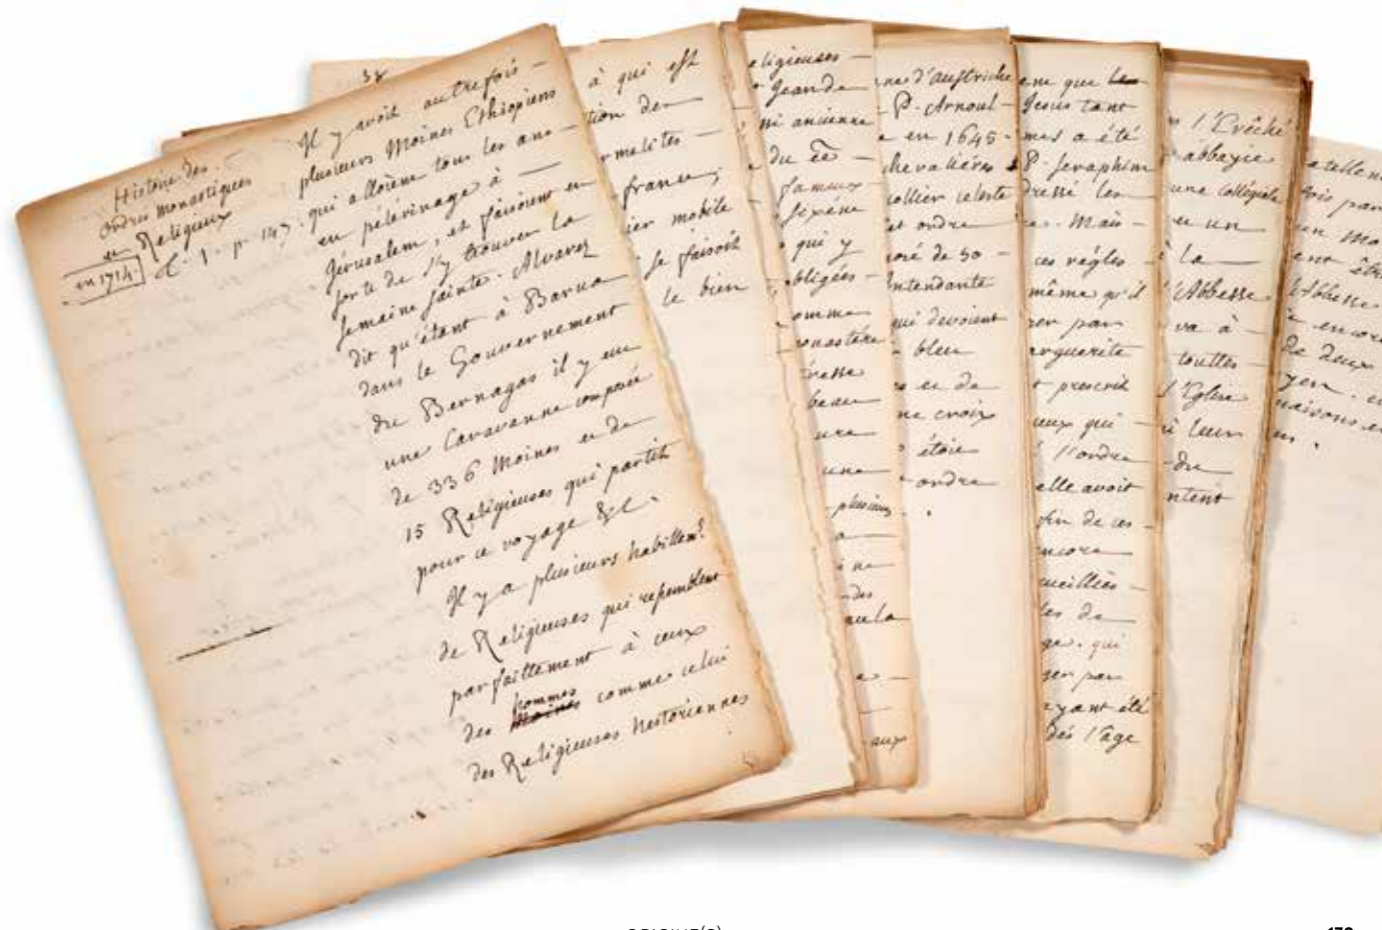 Histoire des
ordres monastiques
et Religieux
en 1714.
T. 1. p. 147.
Il y avoit autrefois —
plusieurs Moines Ethiopiens
qui alloient tous les ans —
en pélérinage à —
Jérusalem, et faisoient en
sorte de s'y trouver la
semaine sainte. Alvarez
dit qu'étant à Barua
dans le Gouvernement
de Bernagas il y eu
une Caravanne composée
de 336 Moines et de
15 Religieuses qui partit
pour ce voyage &c.
Il y a plusieurs habillem.s
de Religieuses qui resemblent
parfaittement à ceux
des hommes comme celui
des Religieuses Nestoriennes
38
à qui est
tion des
rmelites —
france;
ier mobile
se faisoit
le bien
eligieuses —
Jean de
ni ancienne
du
fameux
sixéne
qui y
obligées
omme
onastére
tresse
beau
ure
une
plusieurs
a
i ne
des
aux
nne d'austriche
P. Arnoul —
e en 1645 -
chevalières
collier celeste
et ordre
oré de 50 —
ntendante
qui devoient
bleu
et de
ne croix
étoie
ordre
em que
Jesus tant
mes a été
P. Seraphim
dressé les
Mais —
ces régles —
même qu'il
er par
arguerite
t prescrit
eux qui —
l'ordre
elle avoit
fin de ces
ncore
cueillies
les de
ge. qui
ger par
ayant été
dés l'âge
l'Evêché
abbayie
une Collégiale
eu un
à la
l'Abbesse
va à
touttes
l'Eglise
i leur
du
ntent
a telle m
fois par
un mo
ent êt
l'Abbesse
encore
de deux
yen
maisons e
ORIGINE(S)
179